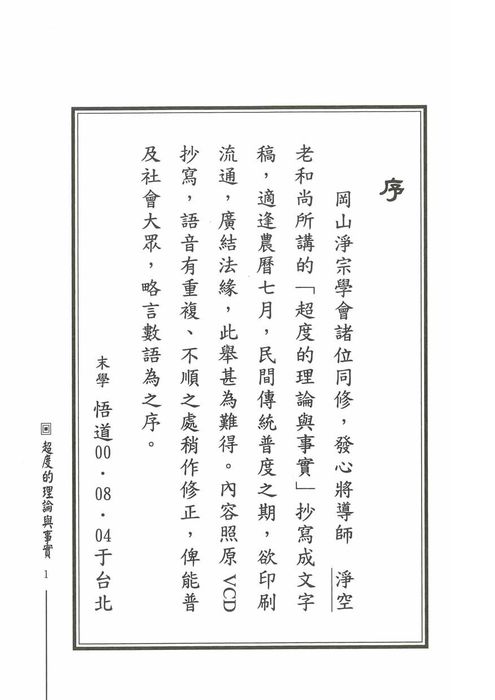 序
岡山淨宗學會諸位同修，發心將導師　淨空
老和尚所講的「超度的理論與事實」抄寫成文字
稿，適逢農曆七月，民間傳統普度之期，欲印刷
流通，廣結法緣，此舉甚為難得。內容照原VCD
抄寫，語音有重複、不順之處稍作修正，俾能普
及社會大眾，略言數語為之序。
末學　悟道00．08．04于台北
超度的理論與事實　1